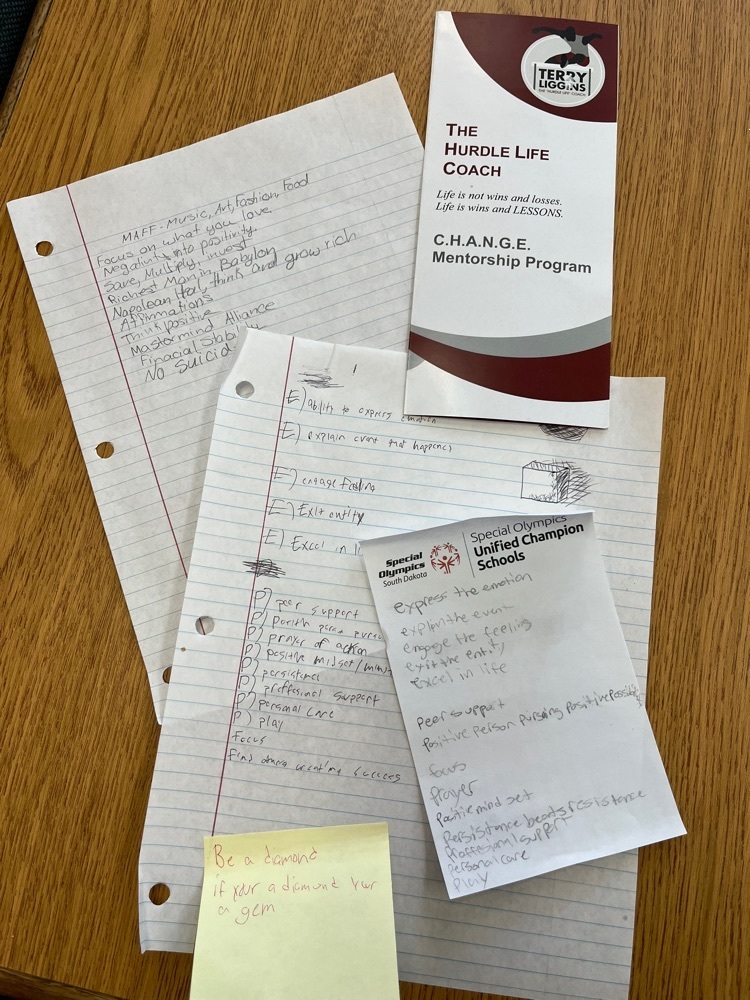 TERRY
LIGGINS
THE "HURDLE LIFE" COACH
THE
HURDLE LIFE
COACH
Life is not wins and losses.
Life is wins and LESSONS.
C.H.A.N.G.E.
Mentorship Program
MAFF - Music, Art, Fashion, Food
Focus on what you love
into positivity.
Save, Multiply, invest
Richest Man in Babylon
Napolean Hill, think and grow rich
Affirmations
Think positive
Mastermind Alliance
No suicid
E) ability to express emotion
E) explain event that happened
E) engage Feeling
E) Exit entity
E) Excel in
P) peer support
P)
P) prayer of action
P) positive
P) persistence
P) proffesional support
P) personal care
P) play
focus
Special
Olympics
South Dakota
Special Olympics
Unified Champion
Schools
express the emotion
explain the event
engage the feeling
exit the entity
excel in life
peer support
positive person pursing positive
focus
Prayer
mind set
Persistance beats resistance
Proffesional support
Personal care
Play
Be a diamond
if your a diamond your
a gem